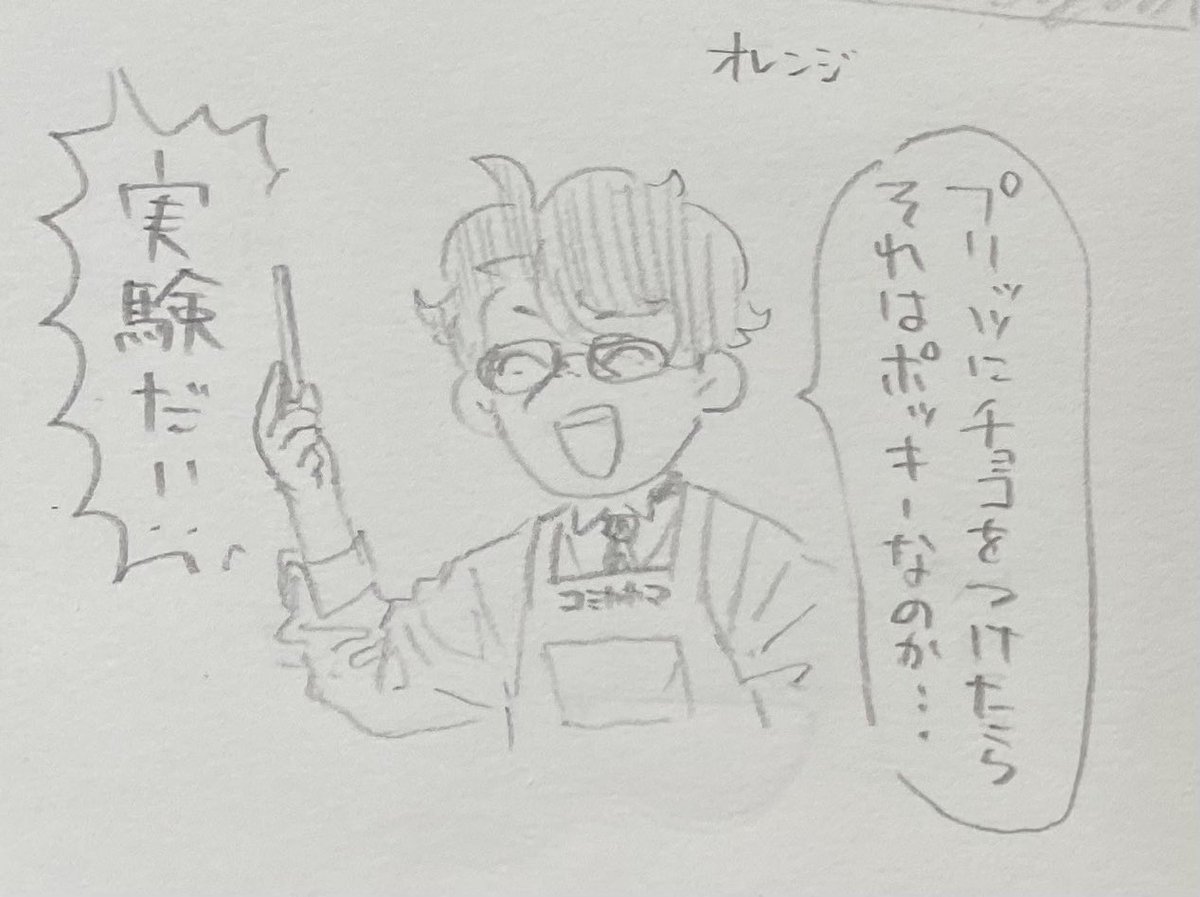 オレンジ
プリッツにチョコをつけたら
それはポッキーなのか…
実験だ!!